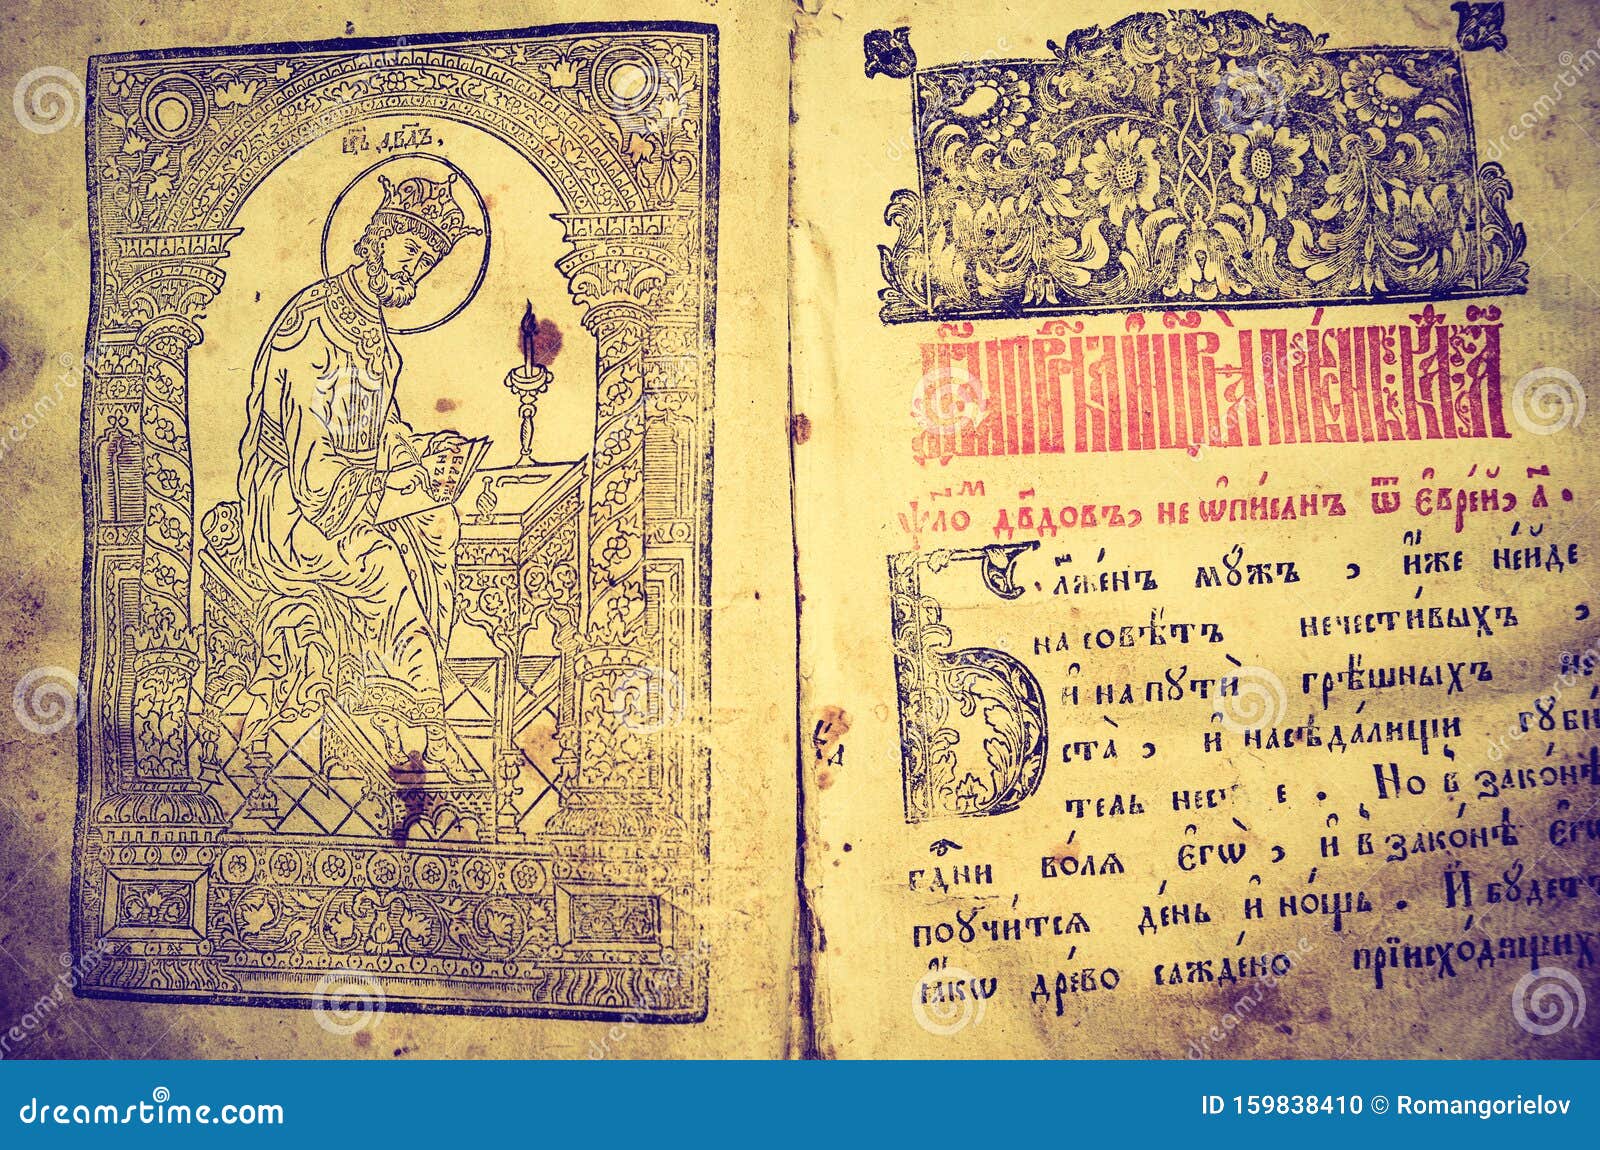 Цр҃ь Дв҃дъ,
БЛАЖЕНЪ
Ѱало́мъ дв҃довъ, не ѡ҆пи́санъ ѿ є҆вре́й, а҃.
Бл҃же́нъ мꙋ́жъ, и҆́же не и҆́де
на совѣ́тъ нечести́выхъ,
и҆ на пꙋти̑ грѣ́шныхъ не
ста̀, и҆ на сѣда́лищи гꙋби́
тель не сѣ́де. Но в̾ зако́нѣ
гдⷭ҇ни во́лѧ є҆гѡ̀, и҆ в̾ зако́нѣ є҆гѡ̀
поꙋчи́тсѧ де́нь и҆ но́щь. И҆ бꙋ́детъ
ꙗ҆́кѡ дре́во сажде́но при и҆схо́дѧщихъ
dreamstime.com
ID 159838410 © Romangorielov